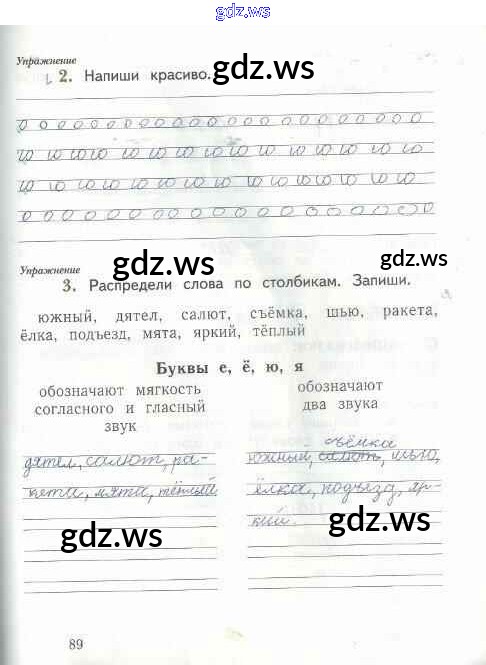 gdz.ws
Упражнение
2. Напиши красиво.
gdz.ws
gdz.ws
gdz.ws
Упражнение
gdz.ws
gdz.ws
3. Распредели слова по столбикам. Запиши.
южный, дятел, салют, съёмка, шью, ракета,
ёлка, подъезд, мята, яркий, тёплый
Буквы е, ё, ю, я
обозначают мягкость
согласного и гласный
звук
обозначают
два звука
дятел, салют, ра-
кета, мята, тёплый
съёмка
южный, салют, шью,
ёлка, подъезд, яр-
кий.
gdz.ws
gdz.ws
89